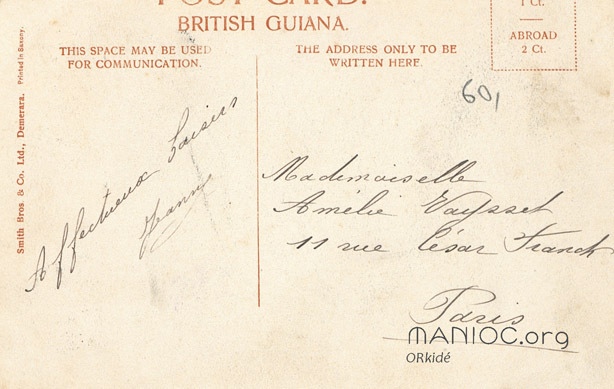 POST CARD.
BRITISH GUIANA.
1 Ct.
ABROAD
2 Ct.
THIS SPACE MAY BE USED
FOR COMMUNICATION.
THE ADDRESS ONLY TO BE
WRITTEN HERE.
Smith Bros. & Co. Ltd., Demerara. Printed in Saxony.
60,
Affectueux baisers
Mademoiselle
Amélie Vaysset
11 rue César Franck
Paris
MANIOC.org
ORkidé